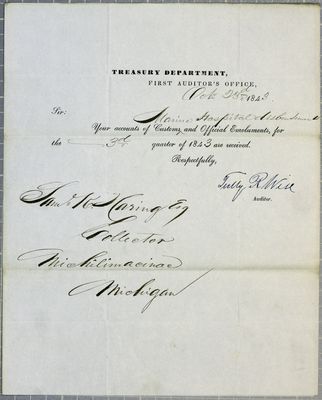 TREASURY DEPARTMENT,
FIRST AUDITOR'S OFFICE,
Oct 23d 1843.
Sir:
Marine Hospital
Your accounts of Customs, and Official Emoluments, for
the 3d quarter of 1843 are received.
Respectfully,
Tully R. Wise
Auditor.
Saml K Haring Esq
Collector
Michilimacinac
Michigan